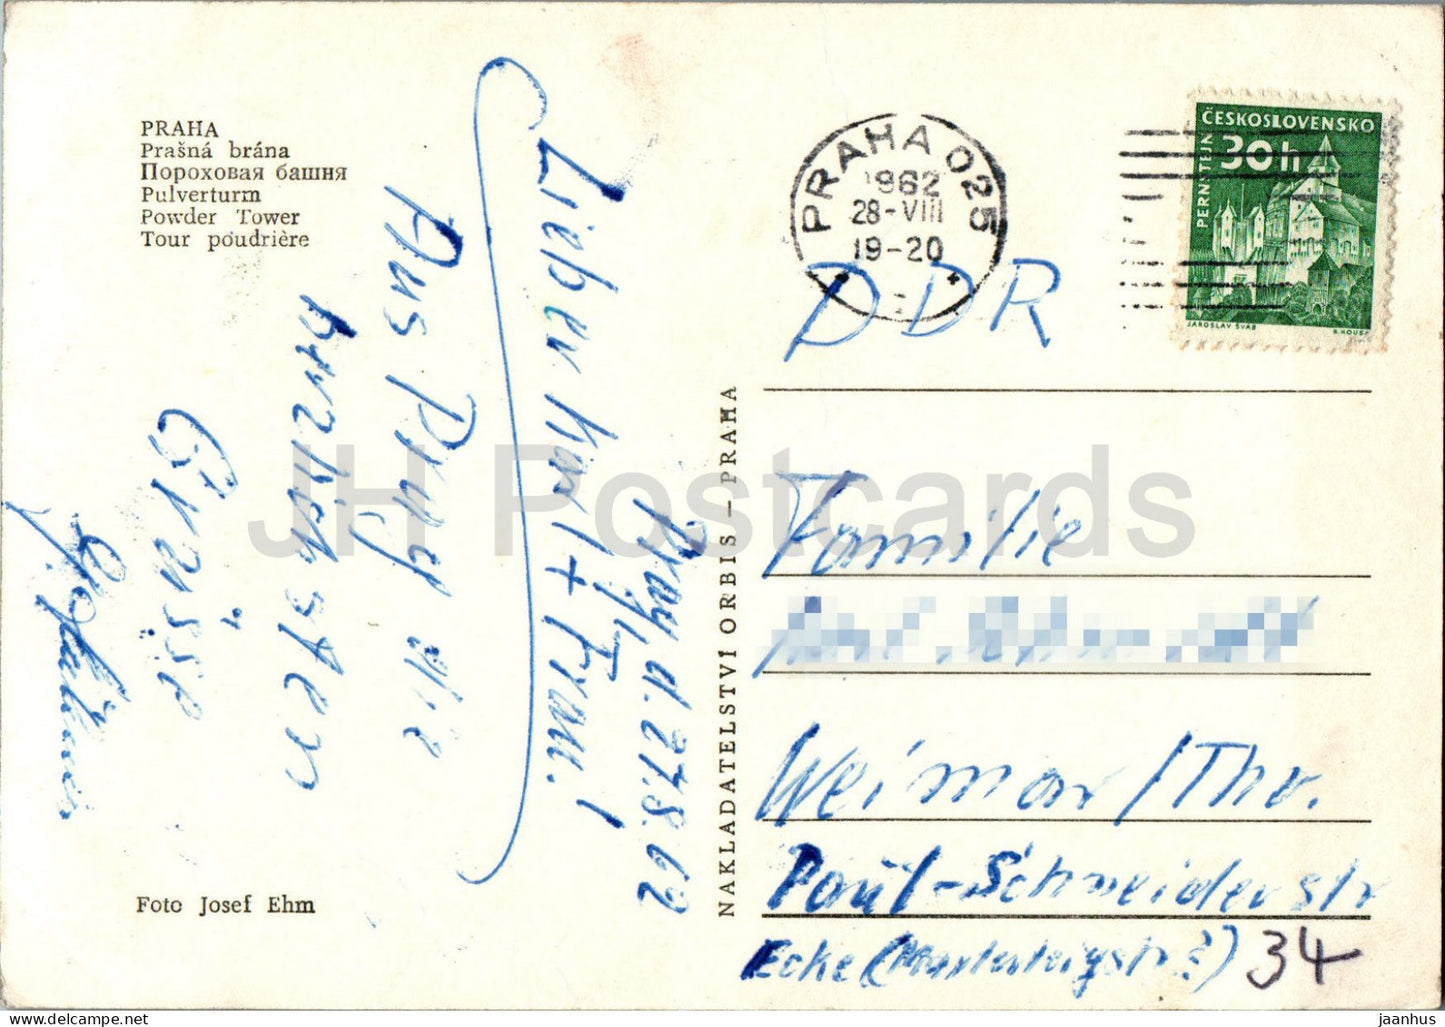 PRAHA
Prašná brána
Пороховая башня
Pulverturm
Powder Tower
Tour poudrière
Foto Josef Ehm
Prag, d. 27.8.62
Lieber Kurt + Frau!
Aus Prag die
herzlichsten
Grüsse
NAKLADATELSTVÍ ORBIS — PRAHA
PRAHA 025
1962
28-VIII
19-20
ČESKOSLOVENSKO
30h
PERNŠTEJN
JAROSLAV ŠVÁB
DDR
Familie
Weimar/Thür.
Paul-Schneiderstr
Ecke 34
JH Postcards
jaanhus © www.delcampe.net